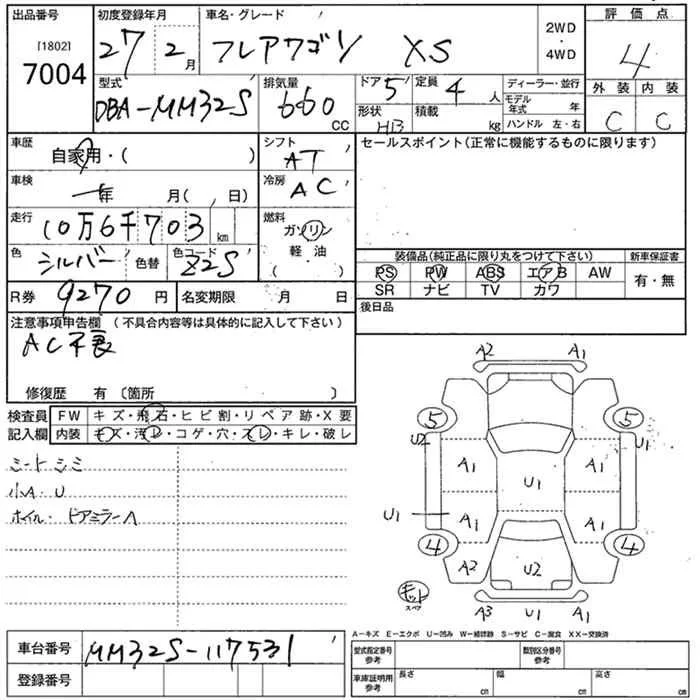 出品番号 初度登録年月 車名・グレード 2WD・4WD 評価点
[1802]
7004 27 2月 フレアワゴン XS 4
型式 排気量 ドア 定員 ディーラー・並行 外装 内装
DBA-MM32S 660CC 5 4人 モデル年式 年 C C
形状 積載 ハンドル 左・右
HB kg
車歴 シフト セールスポイント(正常に機能するものに限ります)
自家用・( ) AT
車検 冷房
年 月( 、日) AC
走行 燃料
10万6千703km ガソリン
色 色替 色コード 軽油
シルバー Z2S ( )
装備品(純正品に限り丸をつけて下さい) 新車保証書
PS PW ABS エアB AW 有・無
SR ナビ TV カワ
R券 9270円 名変期限 月 日 後日品
注意事項申告欄 (不具合内容等は具体的に記入して下さい)
AC不良
修復歴 有 〔箇所 〕
検査員 FW キズ・飛石・ヒビ割・リペア跡・X要
記入欄 内装 キズ・汚レ・コゲ・穴・スレ・キレ・破レ
シートシミ
小A・U
ホイル・ドアミラーA
A2 A1
5 5
U2 U1
A1 U1 A1
U1 A1 A1
4 4
A2 U2
キット
スペア
A3 U1 A1
A-キズ E-エクボ U-凹み W-補修跡 S-サビ C-腐食 XX-交換済
車台番号 MM32S-117531
登録番号
型式指定番号 参考 類別区分番号 参考
車庫証明用 参考 長さ cm 幅 cm 高さ cm